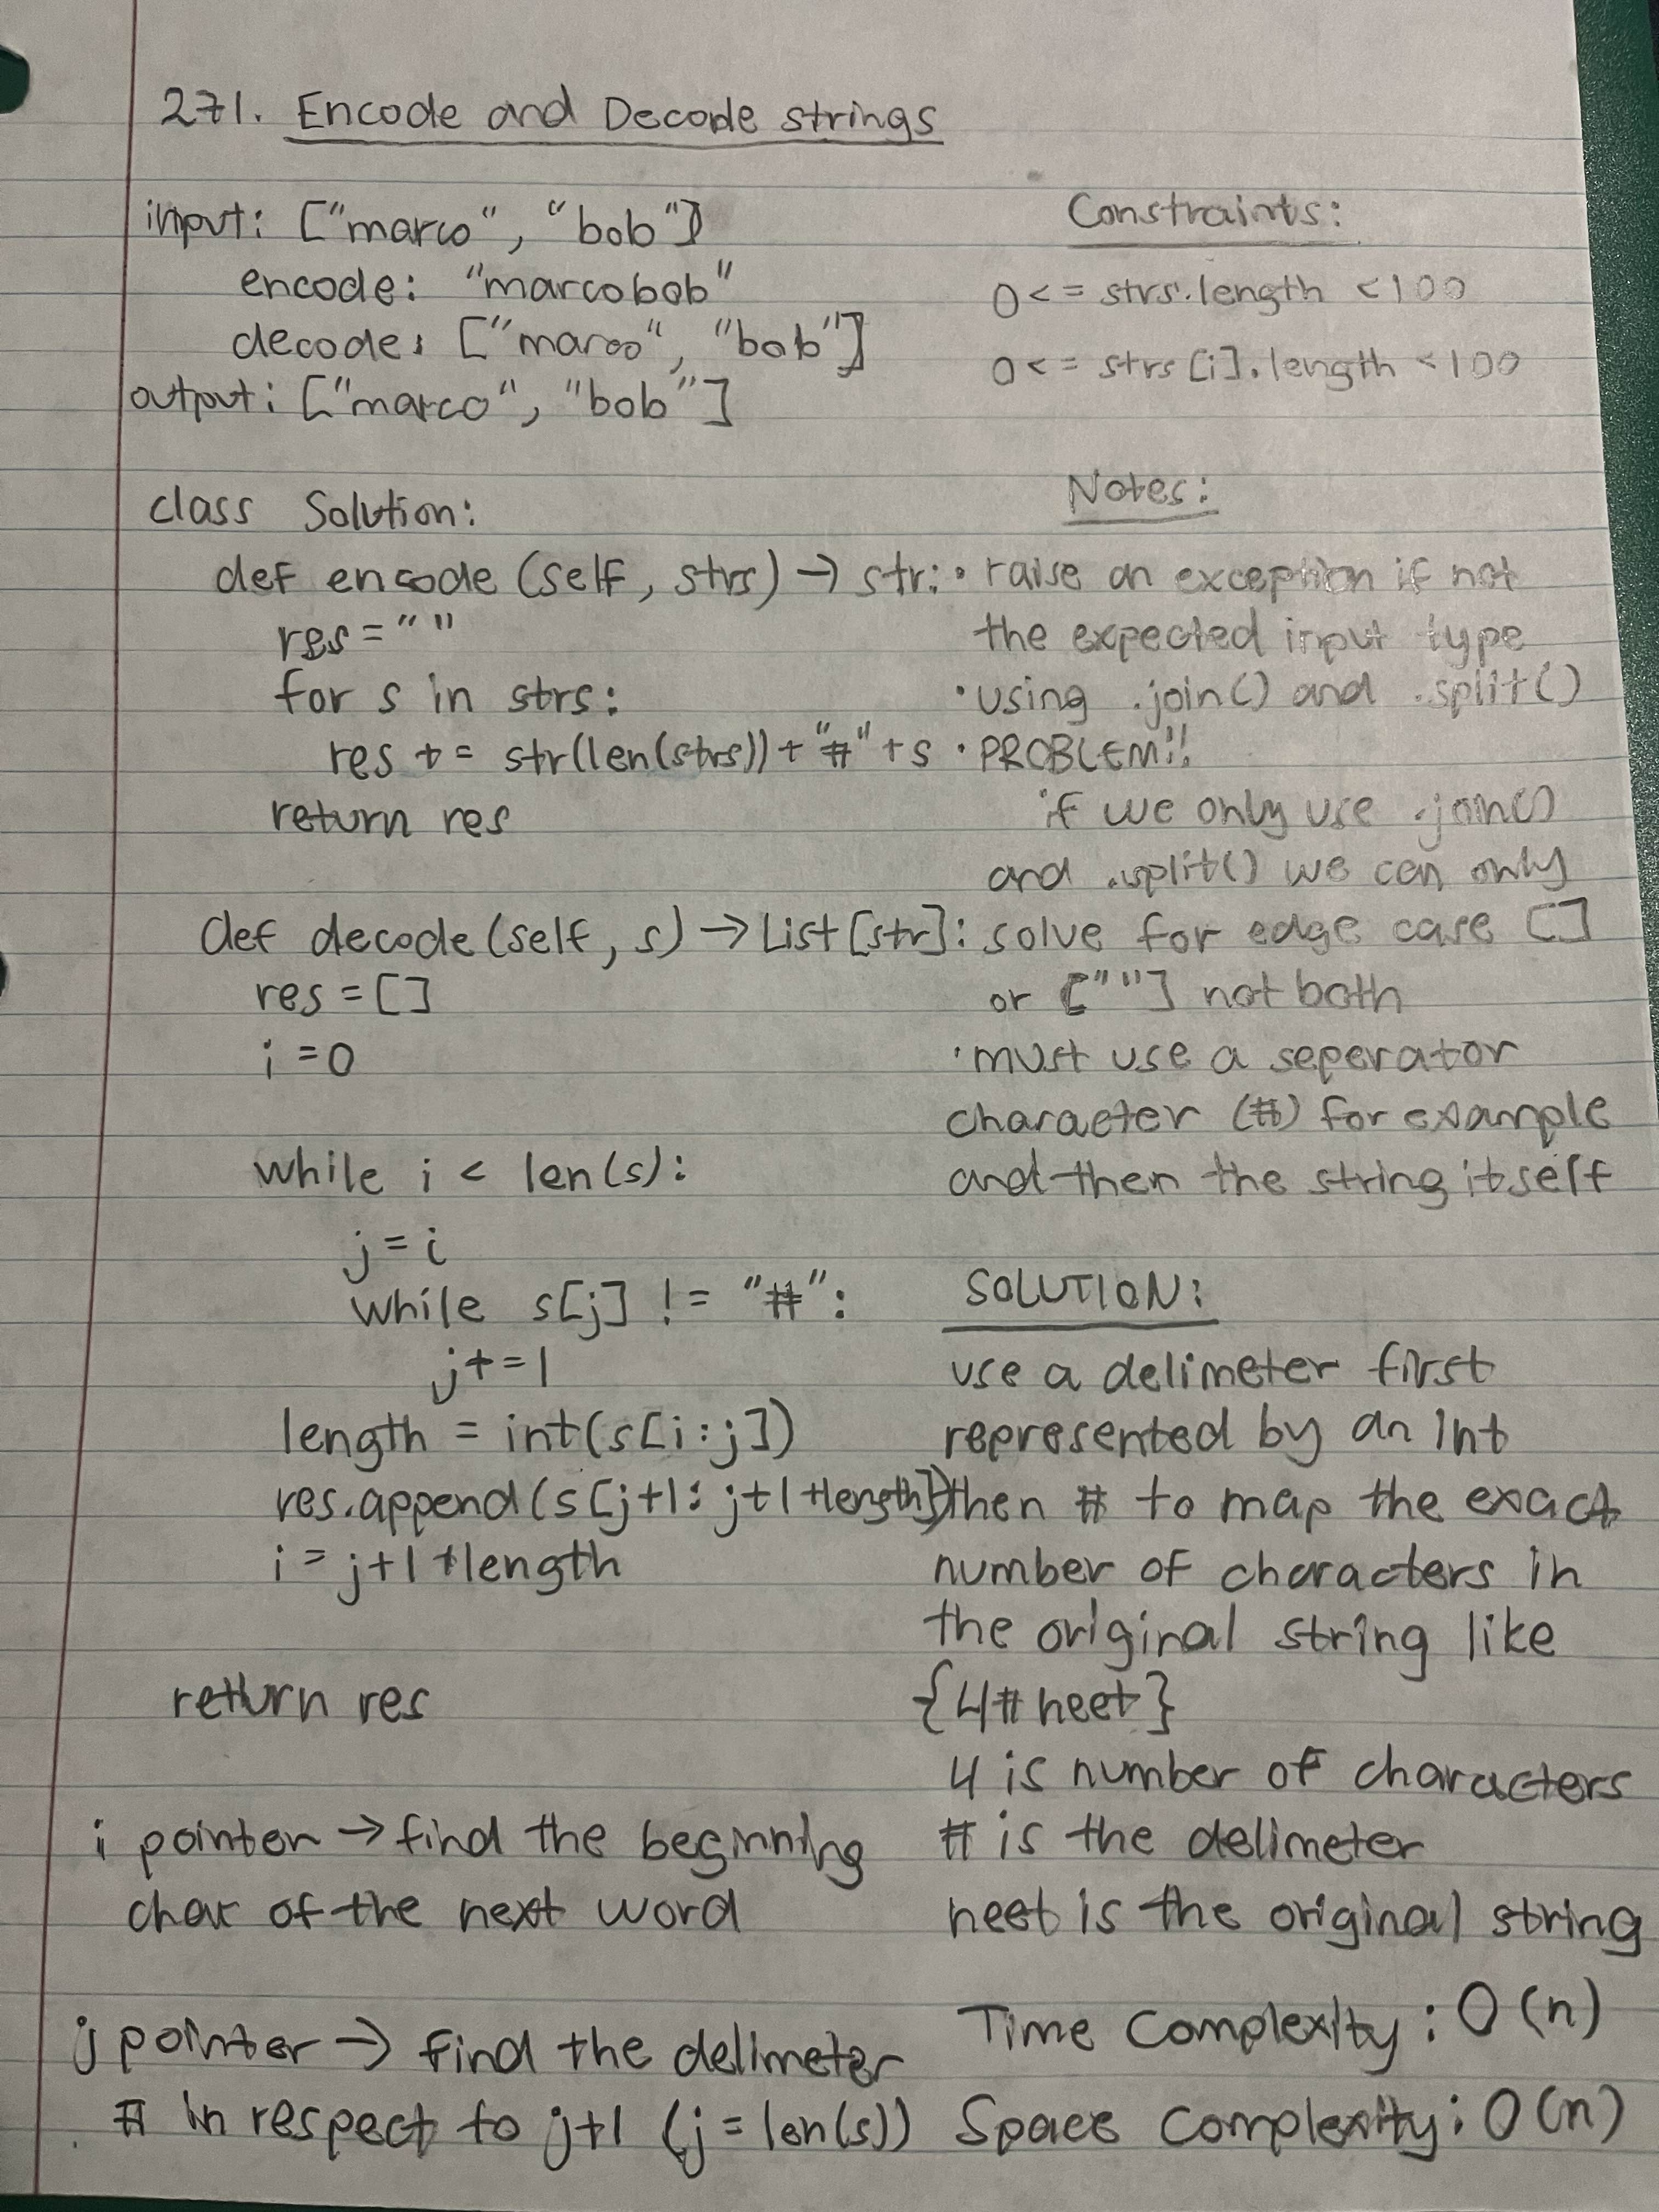 271. Encode and Decode strings
input: ["marco", "bob"]
encode: "marcobob"
decode: ["marco", "bob"]
output: ["marco", "bob"]
Constraints:
0<= strs.length <100
0<= strs[i].length <100
class Solution:
def encode (self, strs) → str:
res = ""
for s in strs:
res += str(len(strs)) + "#" + s
return res
def decode (self, s) → List[str]:
res = []
i = 0
while i < len(s):
j = i
while s[j] != "#":
j+=1
length = int(s[i:j])
res.append(s[j+1: j+1+length])
i = j+1+length
return res
i pointer → find the beginning
char of the next word
j pointer → find the delimeter
# in respect to j+1 (j = len(s))
Notes:
• raise an exception if not
the expected input type
• using .join() and .split()
• PROBLEM!!
if we only use .join()
and .split() we can only
solve for edge case []
or [""] not both
• must use a seperator
character (#) for example
and then the string itself
SOLUTION:
use a delimeter first
represented by an Int
then # to map the exact
number of characters in
the original string like
{4#neet}
4 is number of characters
# is the delimeter
neet is the original string
Time Complexity: O(n)
Space Complexity: O(n)